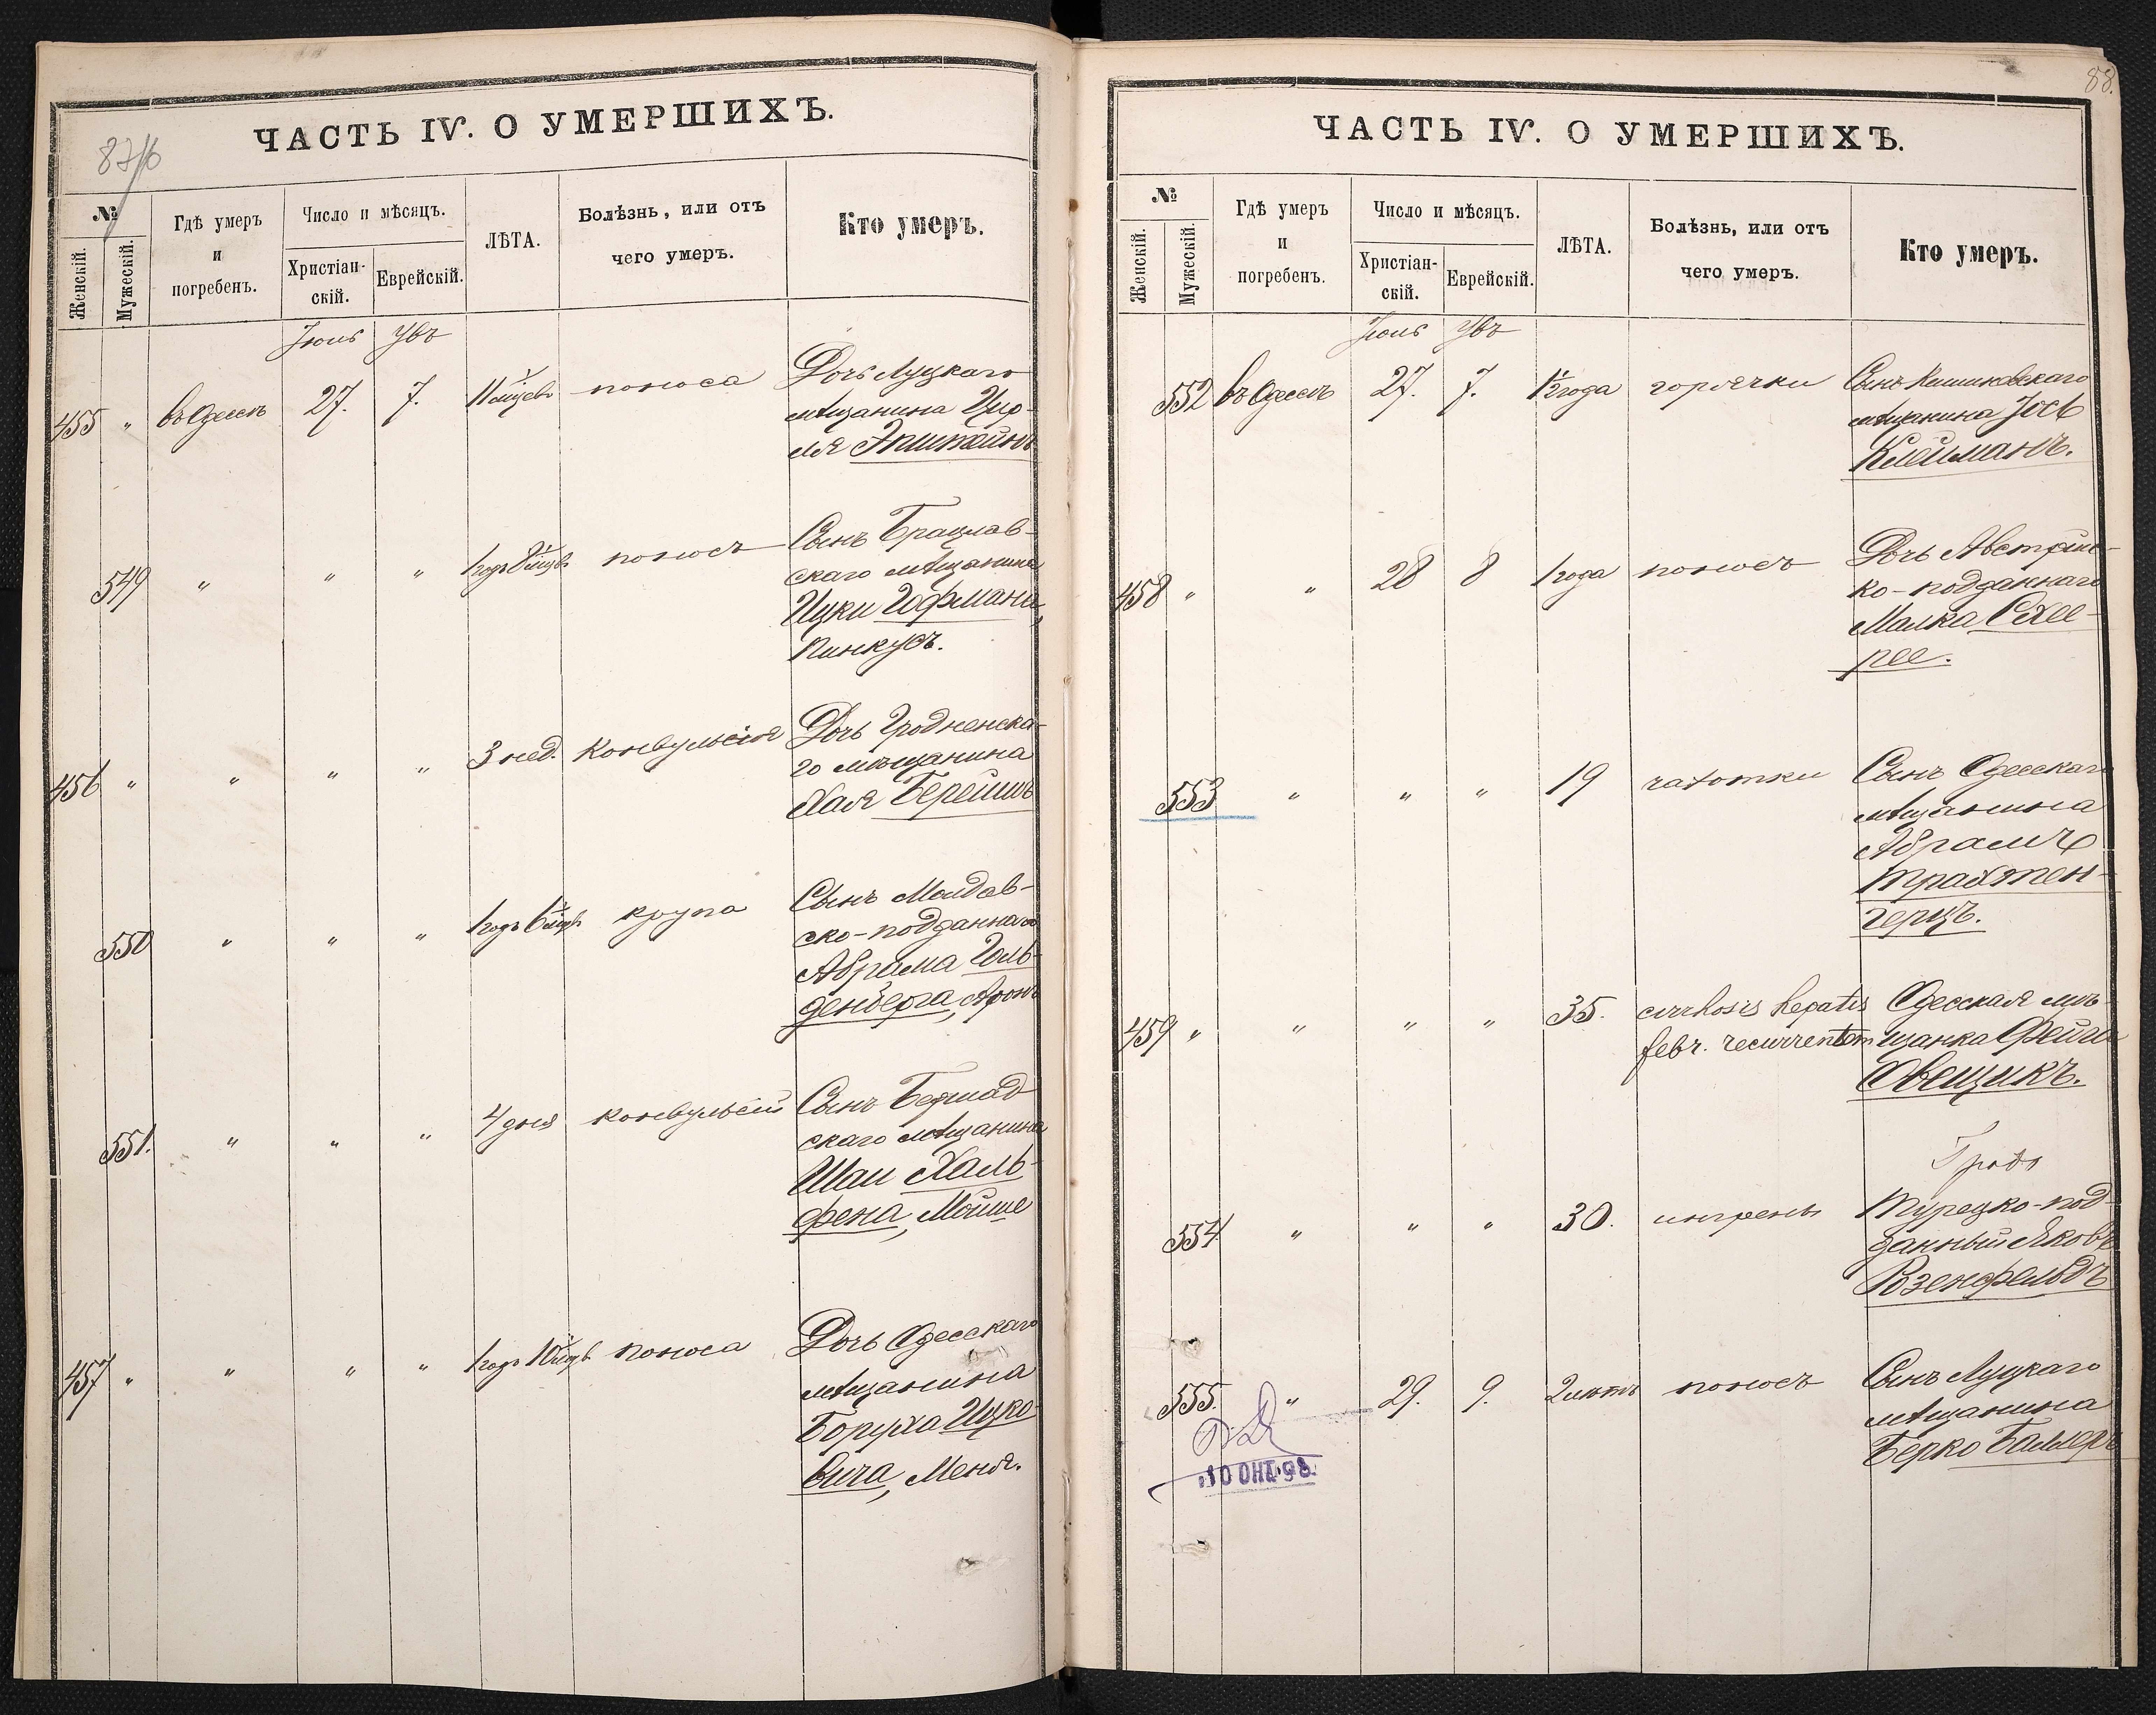 87/б
ЧАСТЬ IV. О УМЕРШИХЪ.
№
Женскій.
Мужескій.
Гдѣ умеръ
и
погребенъ.
Число и мѣсяцъ.
Христіан-
скій.
Еврейскій.
ЛѢТА.
Болѣзнь, или отъ
чего умеръ.
Кто умеръ.
Іюль
455 " въ Одессѣ 27. 7. 11 мѣсяцевъ поноса Дочь Луцкаго
мѣщанина Цир-
ля Эпштейнъ
549 " " " 1 годъ 8 мцвъ поносъ Сынъ Брацлав-
скаго мѣщанина
Ицки Гофмана,
Пинкусъ.
456 " " " " 3 нед. Конвульсія Дочь Гродненска-
го мѣщанина
Хая
550 " " " 1 годъ 6 мцвъ крупа Сынъ Молдав-
ско-подданнаго
Абрама Голь-
денберга, Аронъ
551. " " " 4 дня конвульсій Сынъ Бершад
скаго мѣщанина
Шаи Халь-
фена, Мойше
457 " " " " 1 годъ 10 мцвъ поноса Дочь Одесскаго
мѣщанина
Боруха Ицко-
вича, Меня.
88.
ЧАСТЬ IV. О УМЕРШИХЪ.
№
Женскій.
Мужескій.
Гдѣ умеръ
и
погребенъ.
Число и мѣсяцъ.
Христіан-
скій.
Еврейскій.
ЛѢТА.
Болѣзнь, или отъ
чего умеръ.
Кто умеръ.
Іюль
552 въ Одессѣ 27. 7. года горячки Сынъ Кишиневскаго
мѣщанина Іось
Клейманъ.
458 " " 28 8 1 года поносъ Дочь Австрійс-
ко-подданнаго
Малка
553 " " " 19 чахотки Сынъ Одесскаго
мѣщанина
Абрамъ
Трахтен-
герцъ.
459 " " " " 35. cirrhosis hepatis Одесская мѣ-
febr. recurrentem щанка Фейга
Овещикъ.
554 " " " 30. Турецко-под-
данный Яковъ
Розенфельдъ
555. " 29. 9. 2 лѣтъ поносъ Сынъ Луцкаго
мѣщанина
Берко
10 ОКТ. 98.